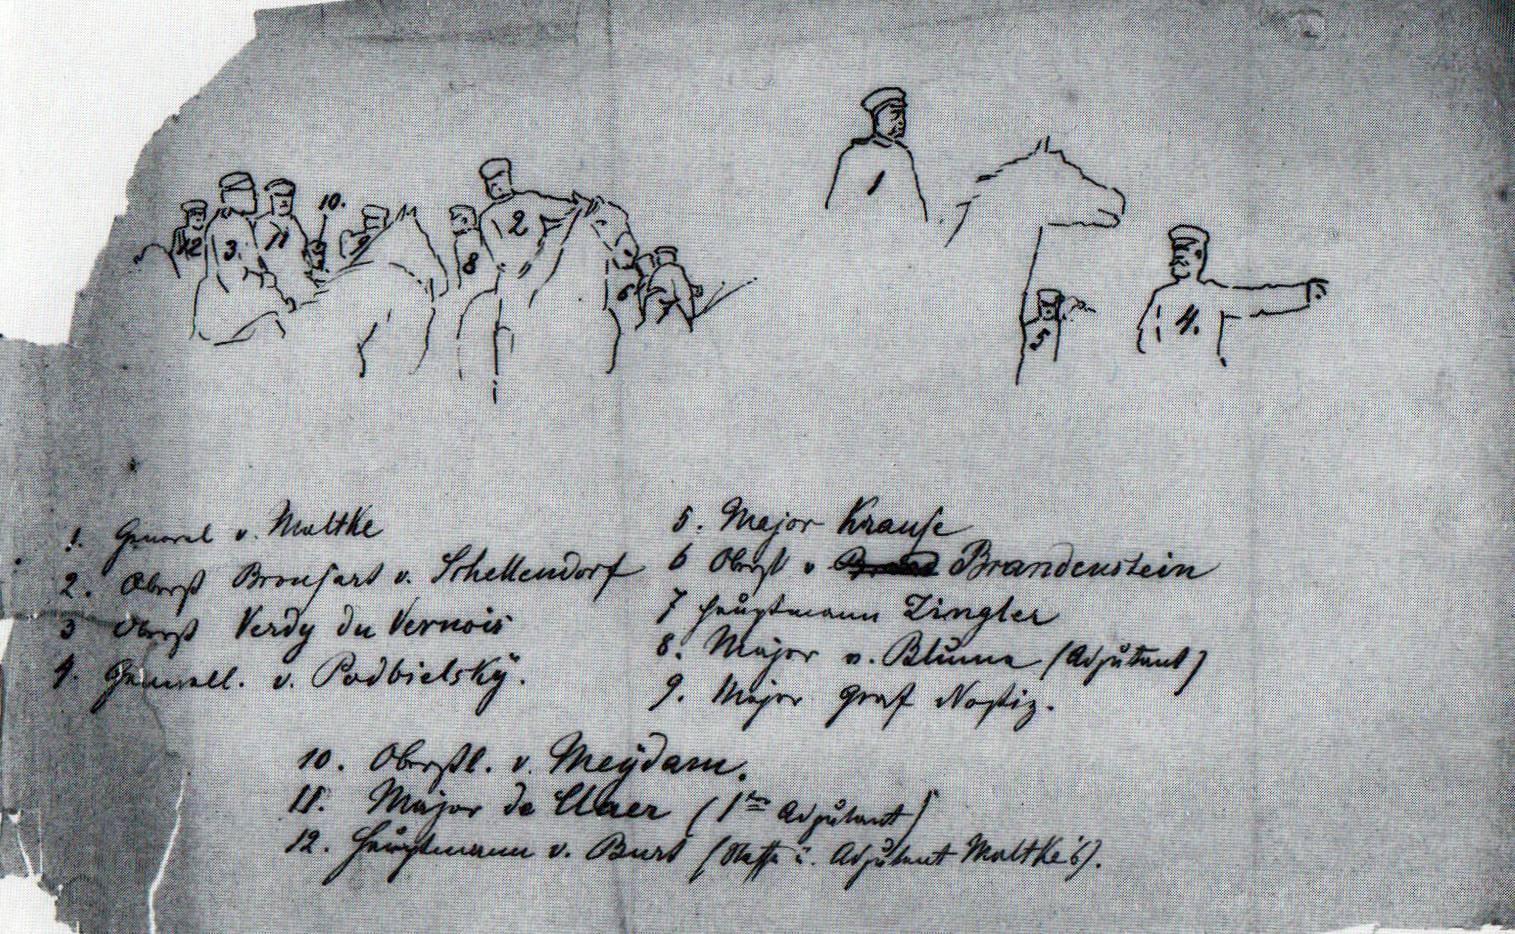 12 3. 11 10. 9 8 2 6 7 1 5 4.
1. General v. Moltke
2. Oberst Bronsart v. Schellendorf
3 Oberst Verdy du Vernois
4. Generall. v. Podbielsky.
5. Major Krause
6 Oberst v Brandenstein
7 Hauptmann Zingler
8. Major v. Blume (Adjutant)
9. Major Graf Nostiz.
10. Oberstl. v. Meydam.
11. Major de Claer (1ter Adjutant)
12. Hauptmann v. Burt (Neffe u. Adjutant Moltke's).